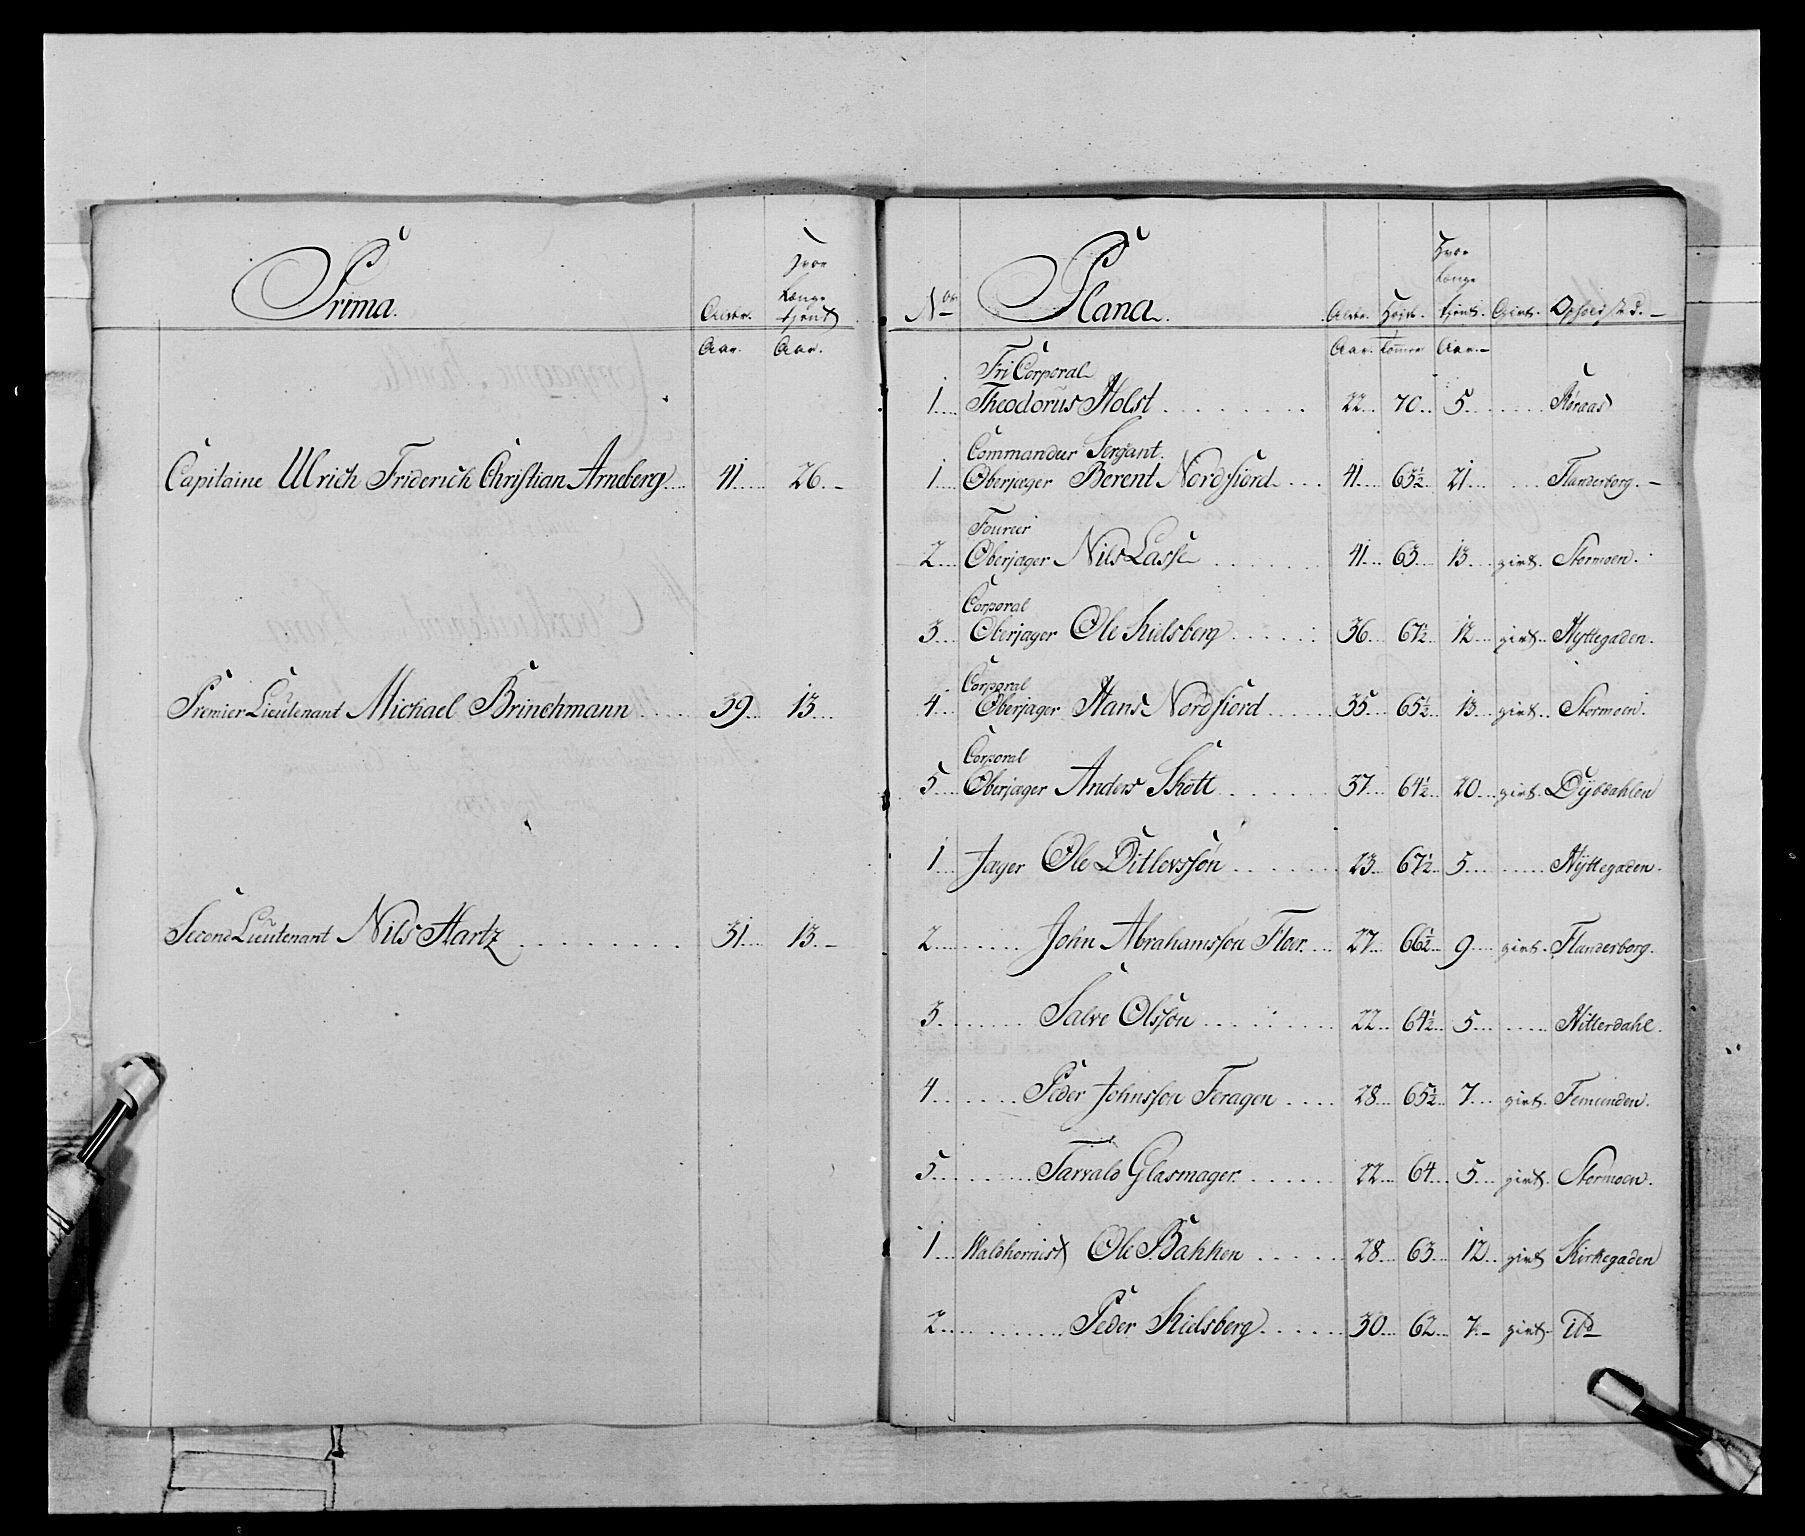 Prima.
Alder. Hvor Længe tjent
Aar. Aar.
Capitaine Ulrich Friderich Christian Arneberg 41 26
Premier Lieutenant Michael Brinchmann 39 13
Second Lieutenant Nils Hartz 31 13
No Plana. Alder. Høide. Hvor Længe tjent. Givt. Opholdstæd.
Aar. Tommer Aar.
Fri Corporal
1 Theodorus Holst 22 70 5 Røraas
Commandeur Sergant.
1 Oberjæger Berent Nordfiord 41 65½ 21 Flanderborg.
Foureer
2 Oberjæger Nils Lasse 41 63 13 givt. Stormoen.
Corporal
3 Oberjæger Ole Kielsberg 36 67½ 12 givt. Hyttegaden.
Corporal
4 Oberjæger Hans Nordfiord 35 65½ 13 givt. Stormoen.
Corporal
5 Oberjæger Anders Skott 37 64½ 20 givt. Dybdahlen
1 Jæger Ole Ditlevssøn 23 67½ 5 Hyttegaden.
2 John Abrahamssøn Floer 27 66½ 9 givt. Flanderborg.
3 Salve Olssøn 22 64½ 5 Hitterdahl.
4 Peder Johnssøn Feragen 28 65½ 7 givt. Femunden.
5 Tarvald Glasmager 22 64 5 givt. Stormoen.
1 Waldhornist Ole Bakken 28 63 12 givt Kirkegaden
2 Peder Kielsberg 30 62 7 givt. Itd